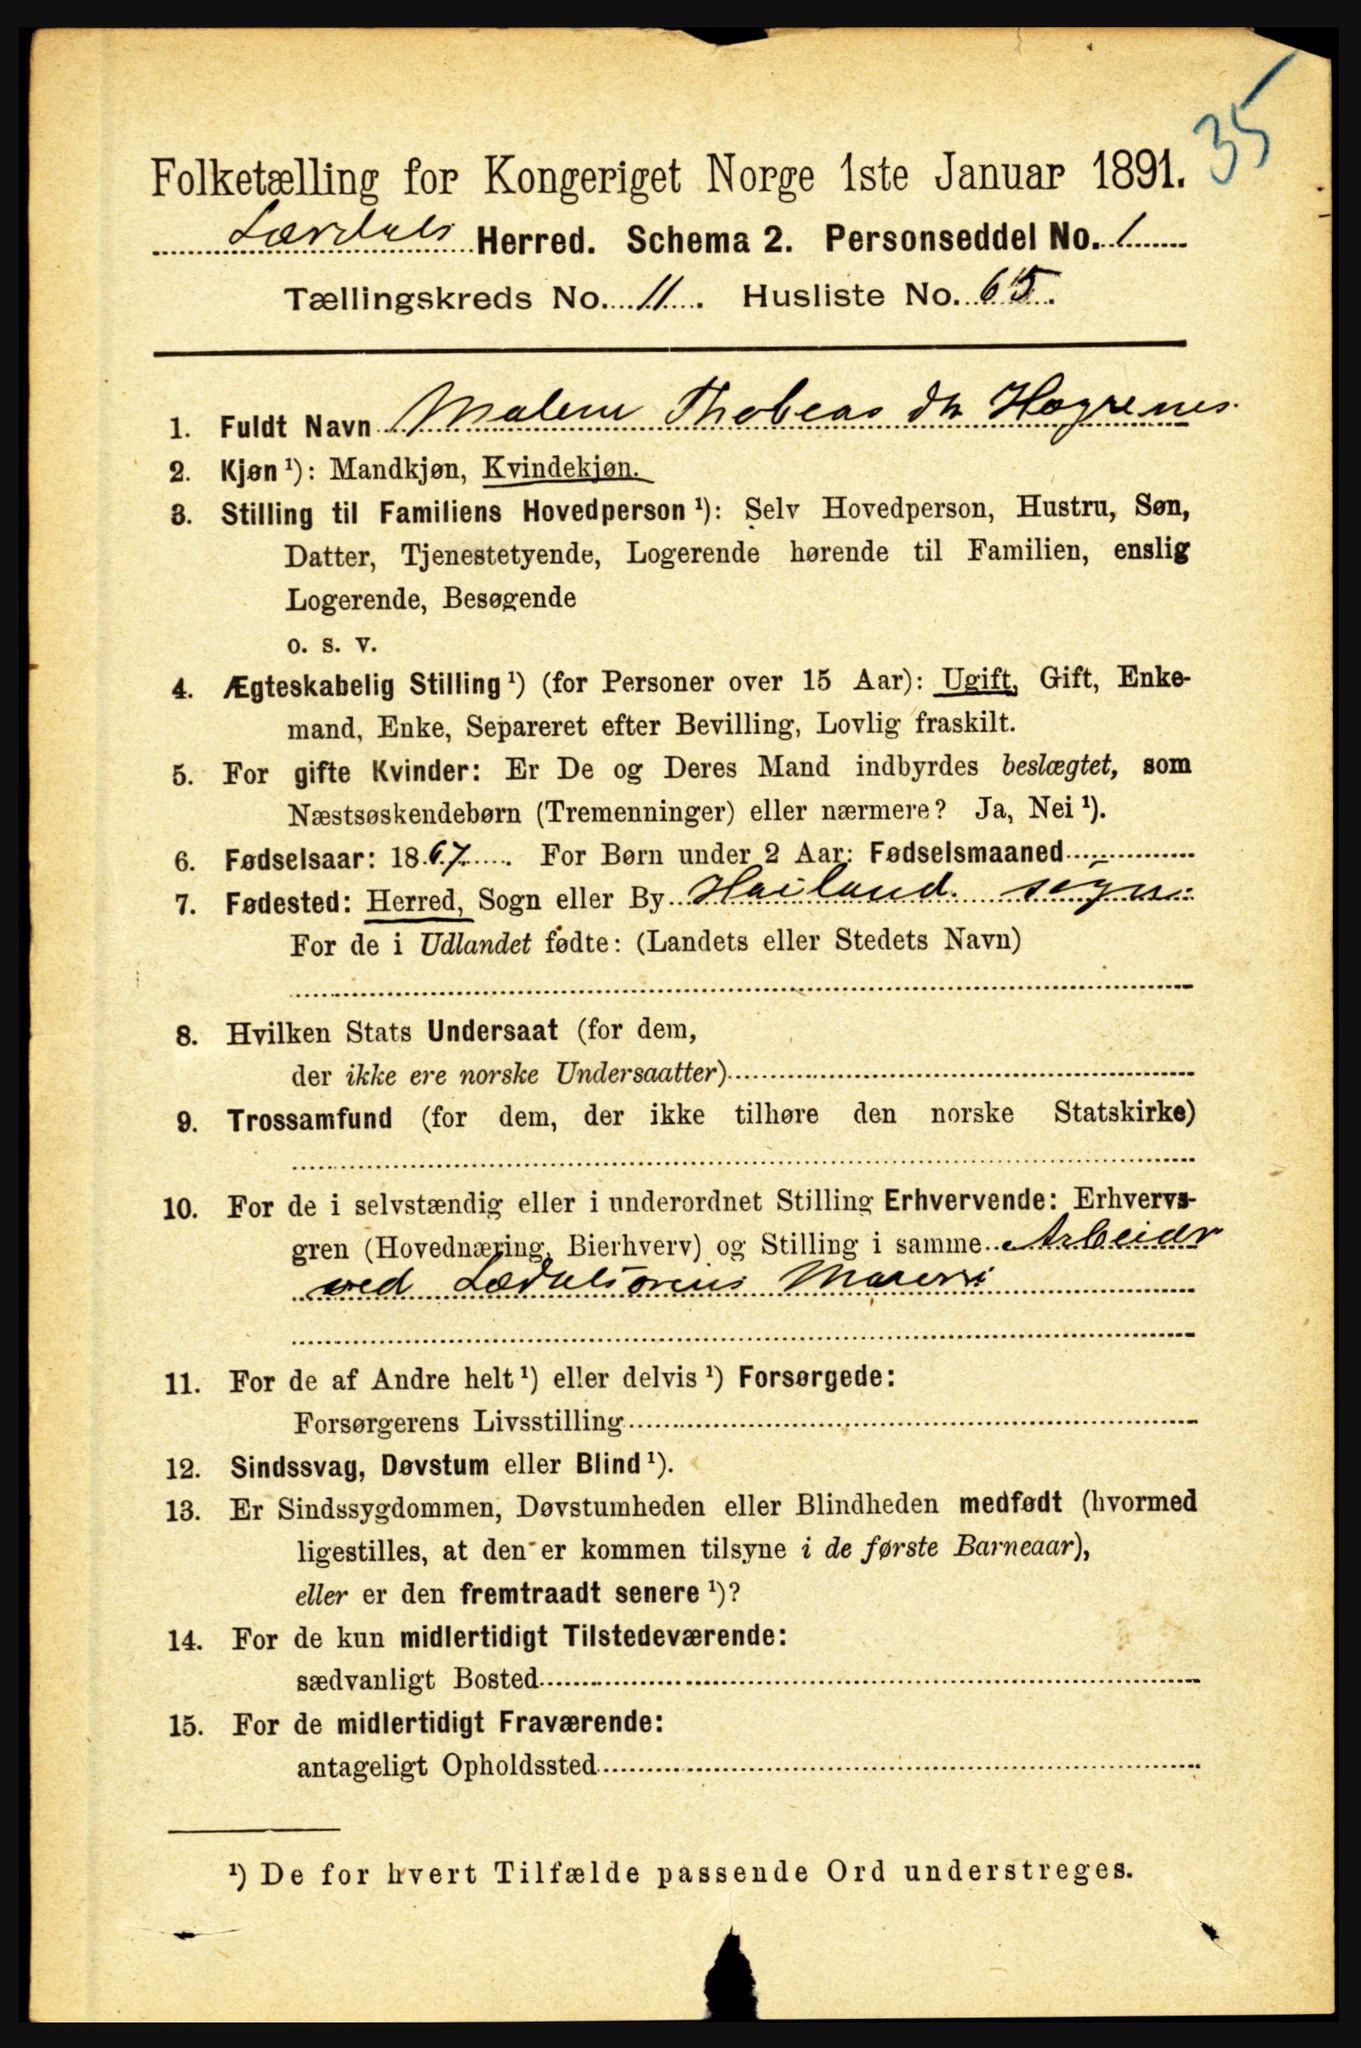 35
Folketælling for Kongeriget Norge 1ste Januar 1891.
Lærdals Herred. Schema 2. Personseddel No. 1
Tællingskreds No. 11. Husliste No. 65.
1. Fuldt Navn Malene Thobeas dtr Hogrenes.
2. Kjøn ¹): Mandkjøn, Kvindekjøn.
3. Stilling til Familiens Hovedperson ¹): Selv Hovedperson, Hustru, Søn,
Datter, Tjenestetyende, Logerende hørende til Familien, enslig
Logerende, Besøgende
o. s. v.
4. Ægteskabelig Stilling ¹) (for Personer over 15 Aar): Ugift, Gift, Enke-
mand, Enke, Separeret efter Bevilling, Lovlig fraskilt.
5. For gifte Kvinder: Er De og Deres Mand indbyrdes beslægtet, som
Næstsøskendebørn (Tremenninger) eller nærmere? Ja, Nei ¹).
6. Fødselsaar: 1867. For Børn under 2 Aar: Fødselsmaaned
7. Fødested: Herred, Sogn eller By sogn:
For de i Udlandet fødte: (Landets eller Stedets Navn)
8. Hvilken Stats Undersaat (for dem,
der ikke ere norske Undersaatter)
9. Trossamfund (for dem, der ikke tilhøre den norske Statskirke)
10. For de i selvstændig eller i underordnet Stilling Erhvervende: Erhvervs-
gren (Hovednæring, Bierhverv) og Stilling i samme Arbeidr
ved
11. For de af Andre helt ¹) eller delvis ¹) Forsørgede:
Forsørgerens Livsstilling
12. Sindssvag, Døvstum eller Blind ¹).
13. Er Sindssygdommen, Døvstumheden eller Blindheden medfødt (hvormed
ligestilles, at den er kommen tilsyne i de første Barneaar),
eller er den fremtraadt senere ¹)?
14. For de kun midlertidigt Tilstedeværende:
sædvanligt Bosted
15. For de midlertidigt Fraværende:
antageligt Opholdssted
¹) De for hvert Tilfælde passende Ord understreges.